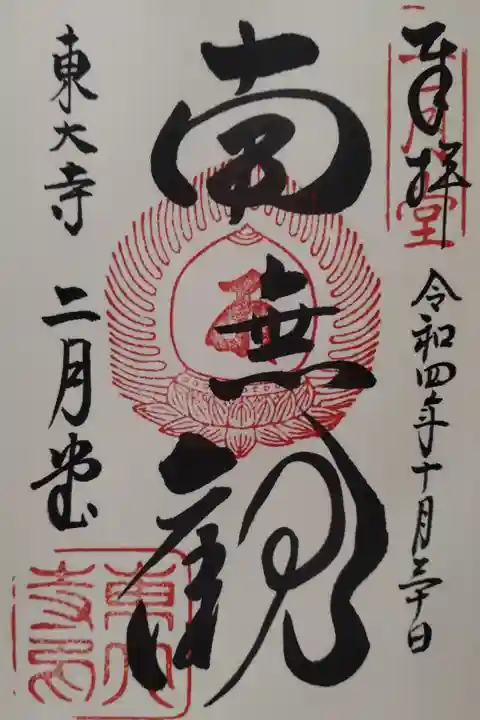 奉拝
二月堂
令和四年十月三十日
南無観
東大寺 二月堂
東大寺印